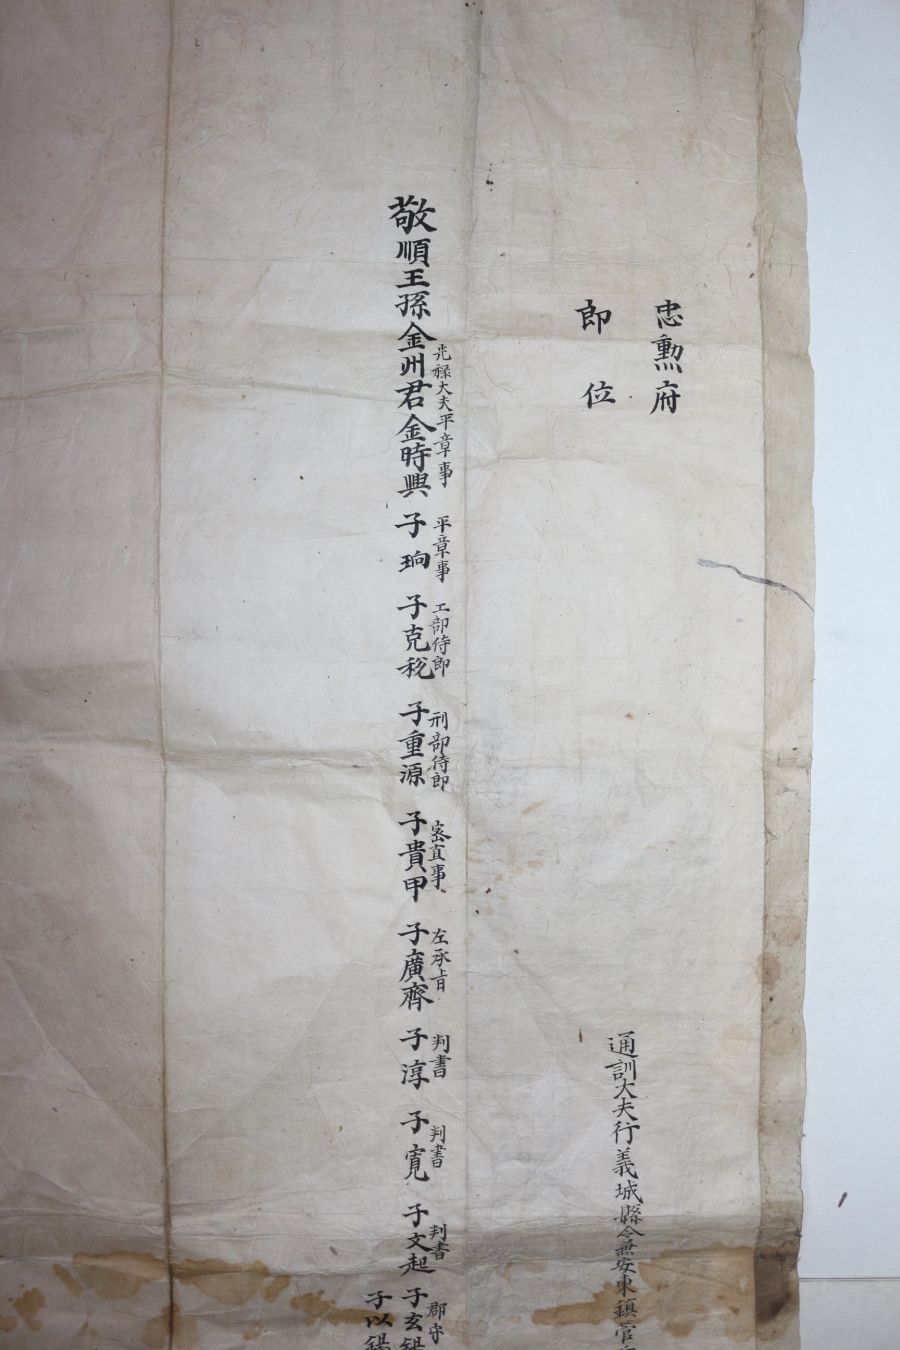 忠勳府
即位
通訓大夫行義城縣令兼安東鎭管
光祿大夫平章事 平章事 工部侍郎 刑部侍郎 密直事 左承旨 判書 判書 判書 郡守
敬順王孫金州君金時興 子珦 子克稅 子重源 子貴甲 子廣齊 子淳 子寬 子文起 子玄錫
子以錫